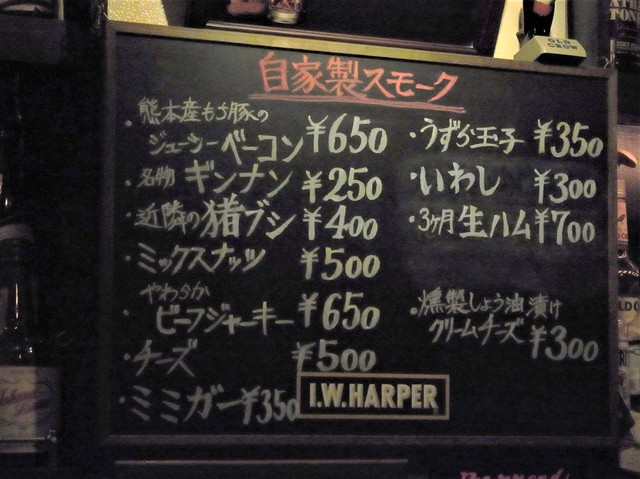 OLD CROW
自家製スモーク
熊本産もち豚の
・ジューシーベーコン ¥650
・名物 ギンナン ¥250
・近隣の猪ブシ ¥400
・ミックスナッツ ¥500
やわらか
・ビーフジャーキー ¥650
・チーズ ¥500
・ミミガー ¥350
・うずら玉子 ¥350
・いわし ¥300
・3ヶ月生ハム ¥700
・燻製しょう油漬け
クリームチーズ ¥300
I.W.HARPER